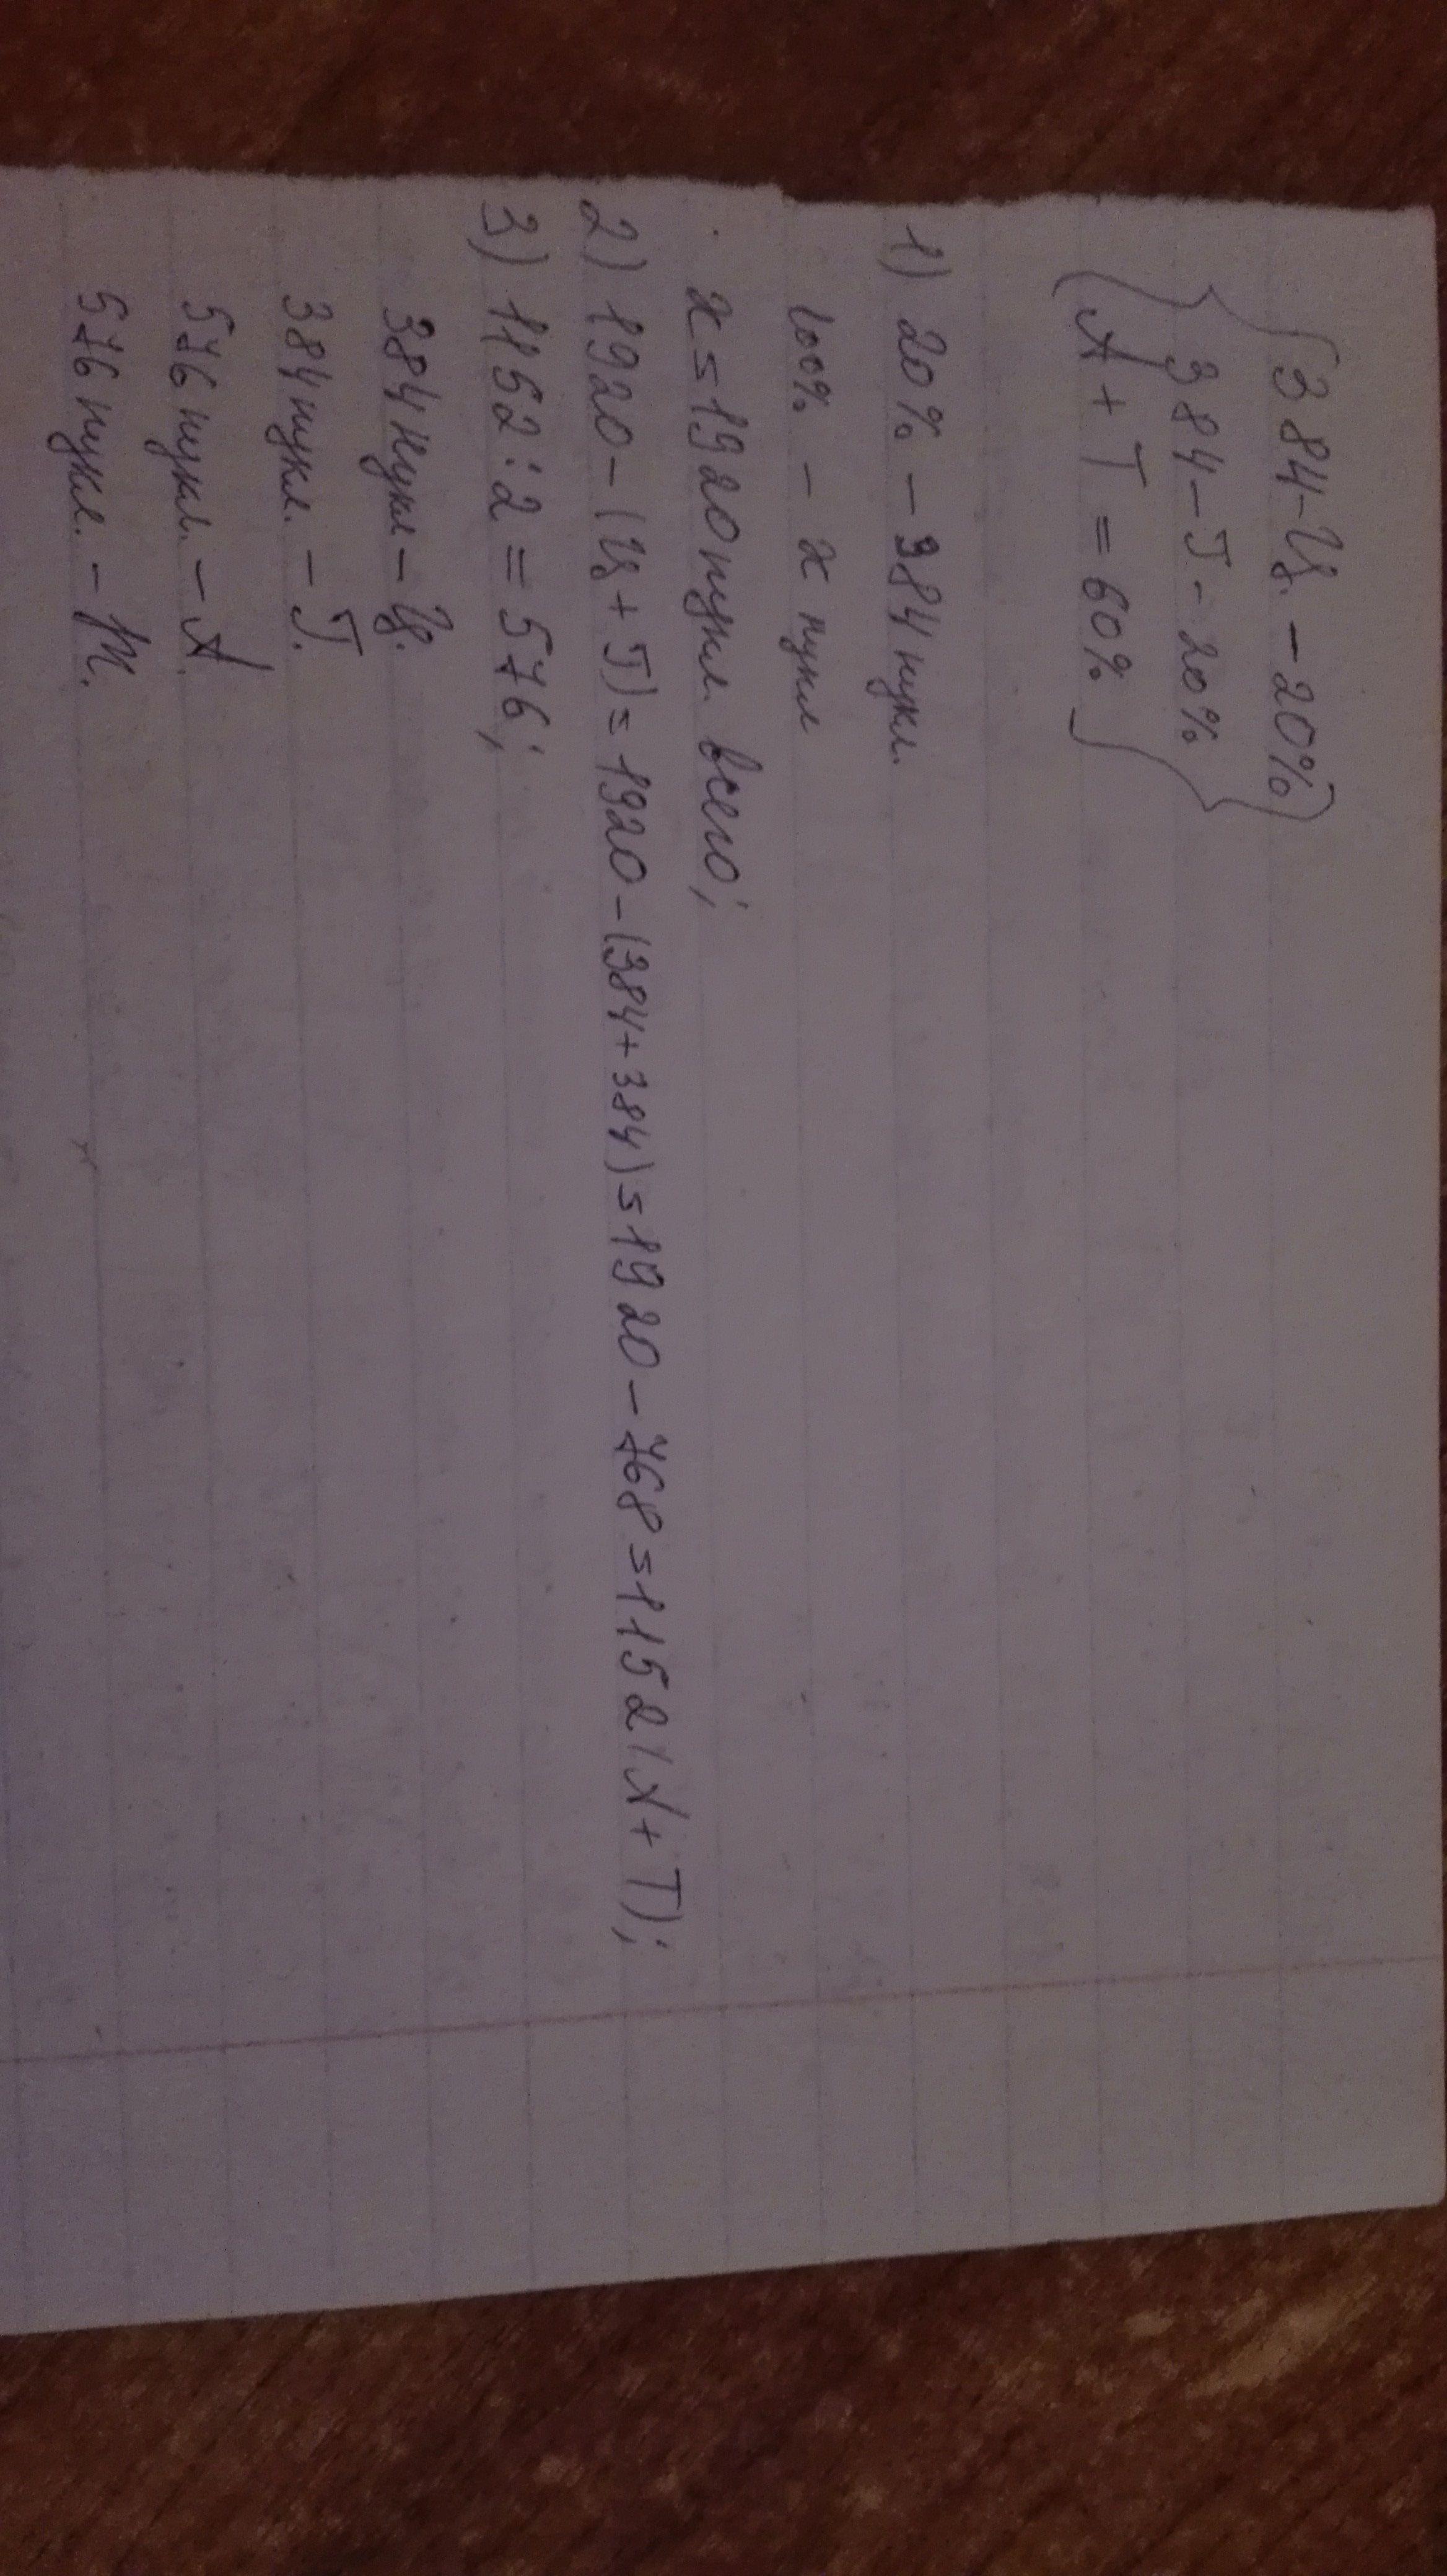 384-Ц. - 20%
384 - Г - 20%
А + Т = 60%
1) 20% - 384 нукл.
100% - x нукл
x = 1920 нукл. всего;
2) 1920 - (Ц + Г) = 1920 - (384 + 384) = 1920 - 768 = 1152 (А + Т);
3) 1152 : 2 = 576;
384 нукл - Ц.
384 нукл. - Г.
576 нукл. - А.
576 нукл. - Т.